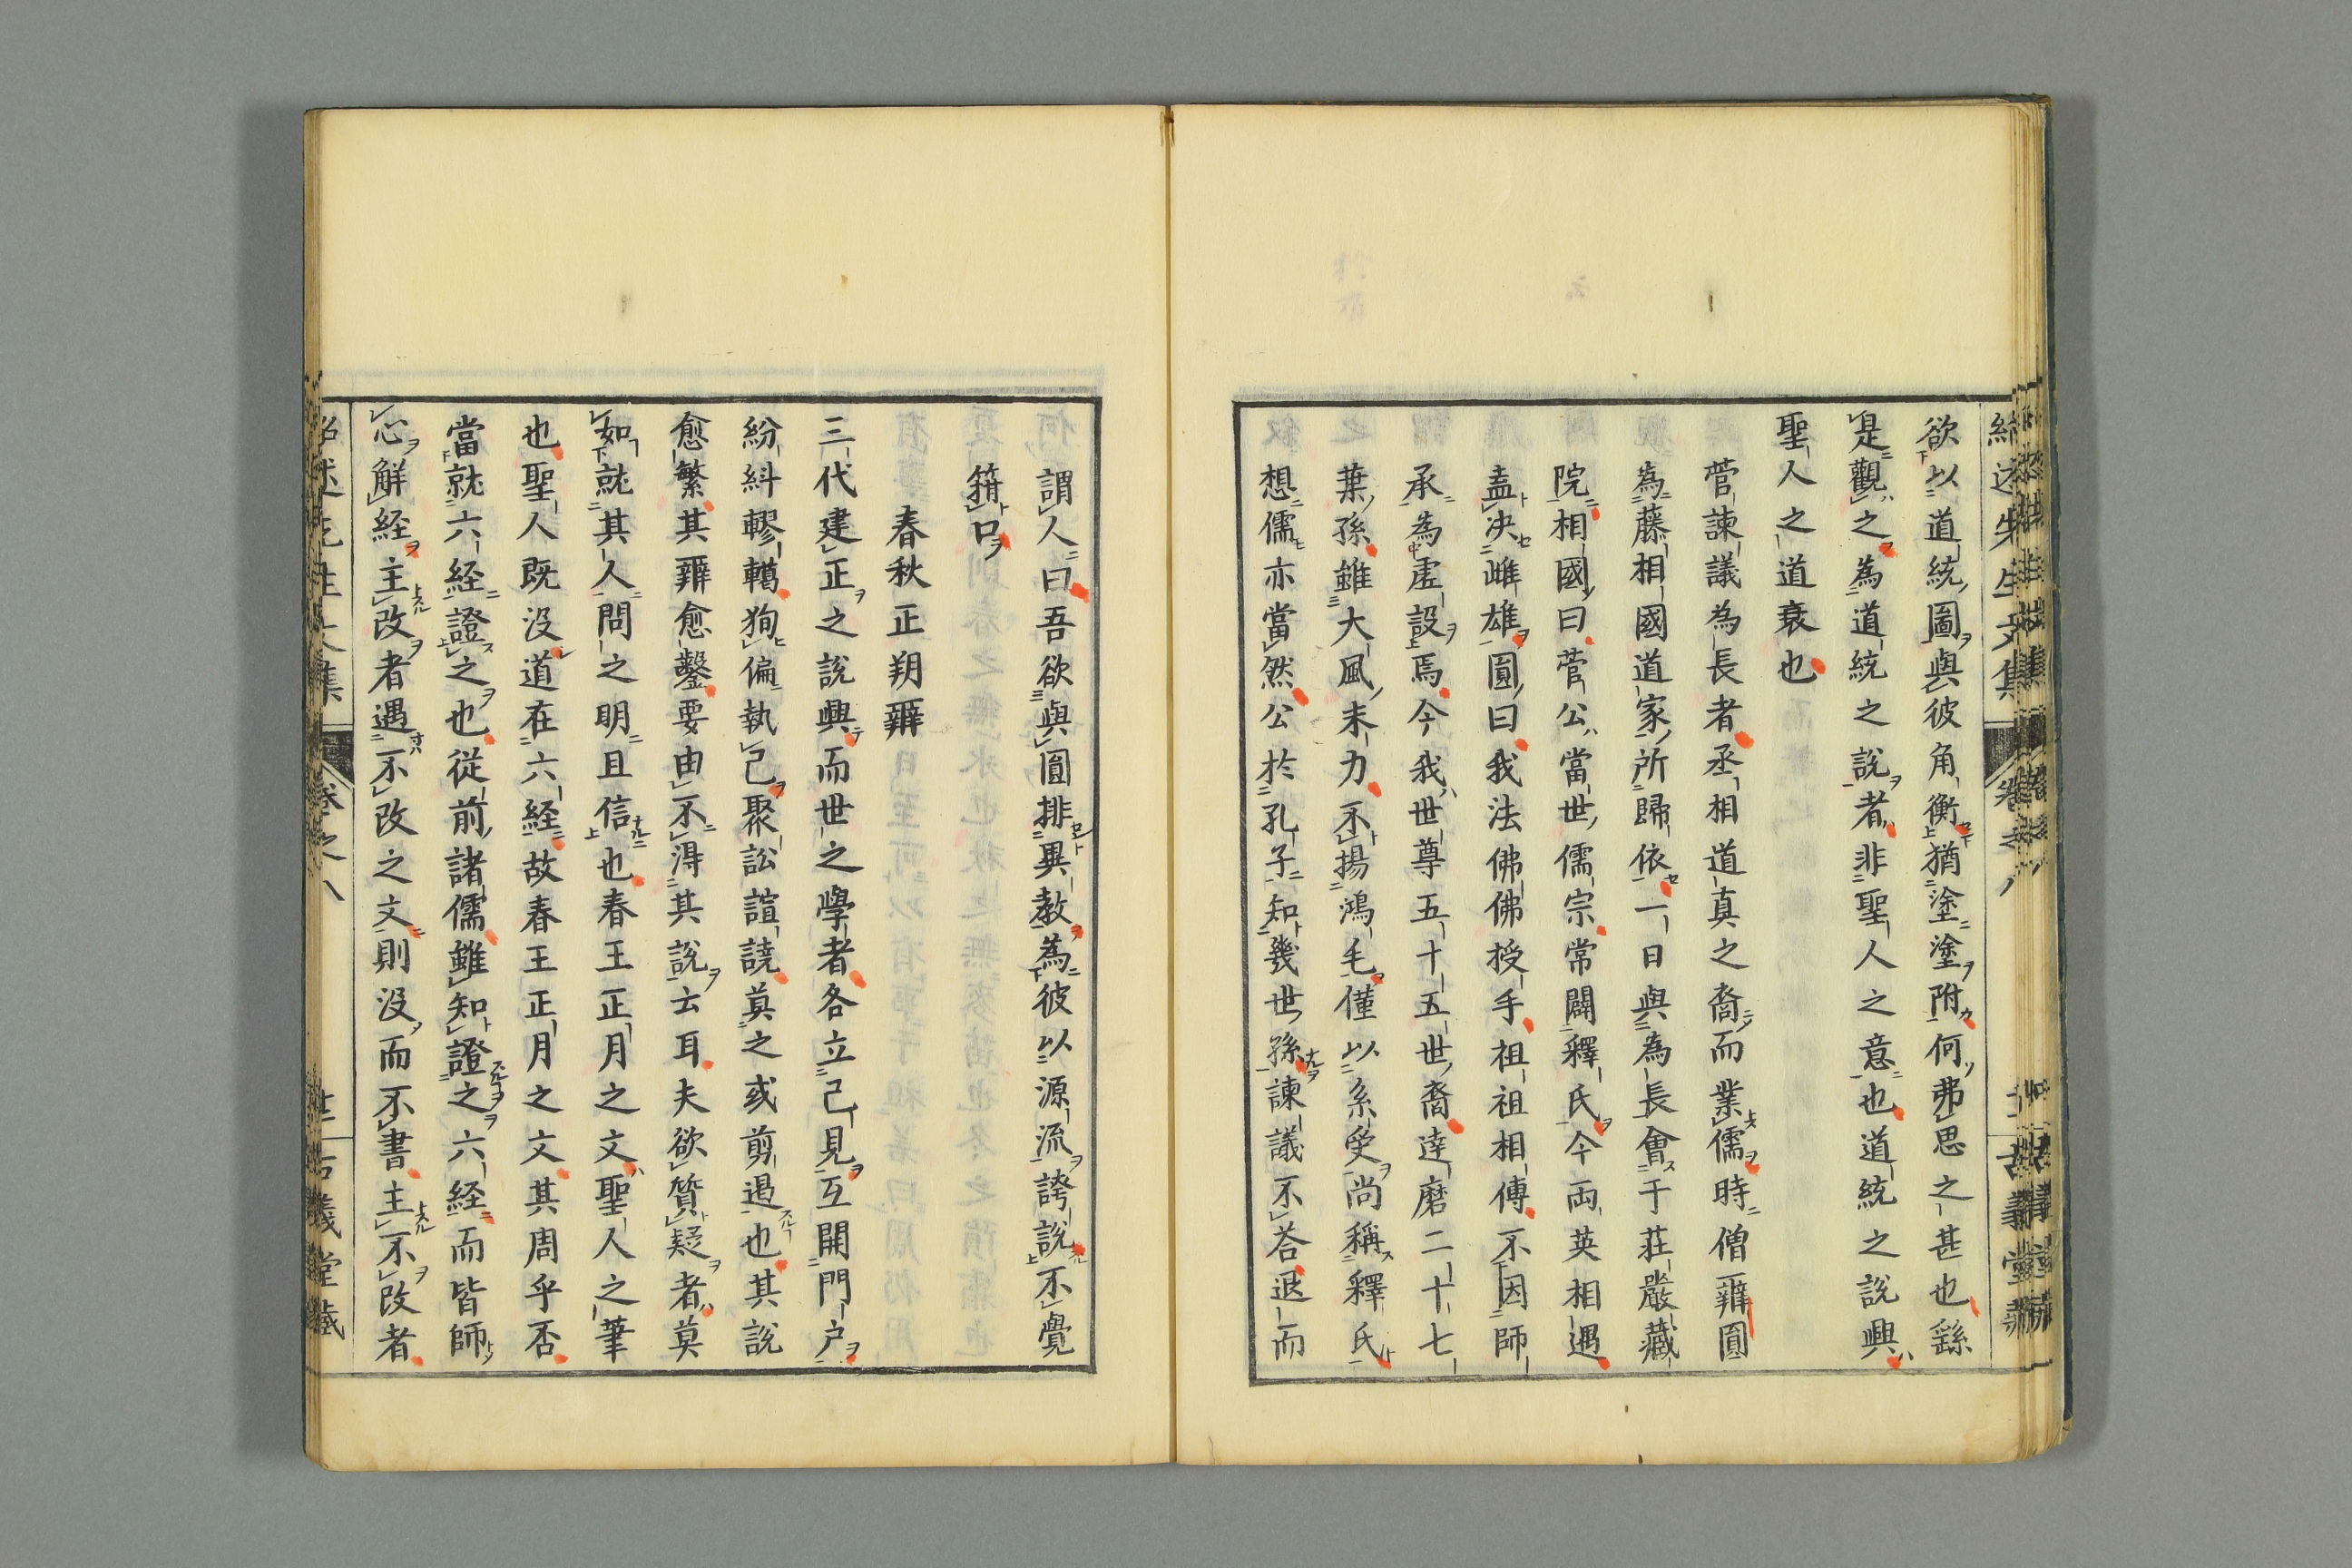 欲以道統圖與彼角衡猶塗塗附何弗思之甚也繇
是觀之為道統之說者非聖人之意也道統之說興
聖人之道衰也
菅諫議為長者丞相道真之裔而業儒時僧辨圓
為藤相國道家所歸依一日與為長會于莊嚴藏
院相國曰菅公當世儒宗常闢釋氏今両英相遇
盍决雌雄圓曰我法佛佛授手祖祖相傳不因師
承為虛設焉今我世尊五十五世裔達磨二十七
葉孫雖大風末力不揚鴻毛僅以系受尚稱釋氏
想儒亦當然公於孔子知幾世孫諫議不荅退而
謂人曰吾欲與圓排異教為彼以源流誇說不覺
箝口
春秋正朔辨
三代建正之說興而世之學者各立己見互開門户
紛糾轇轕狥偏執己聚訟諠譊莫之或剪遏也其說
愈繁其辨愈鑿要由不得其說云耳夫欲質疑者莫
如就其人問之明且信也春王正月之文聖人之筆
也聖人既没道在六経故春王正月之文其周乎否
當就六経證之也從前諸儒雖知證之六経而皆師
心解経主改者遇不改之文則没而不書主不改者
卷之八
古義堂藏